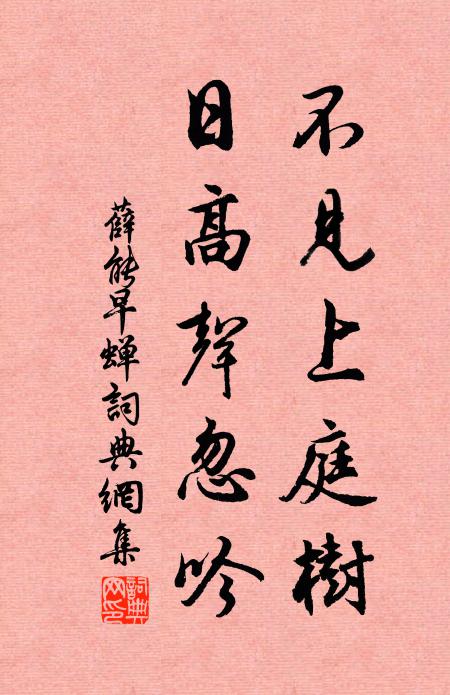 不見上庭樹
日高聲忽吟
薛能早蟬詞典網集
詞典
网印